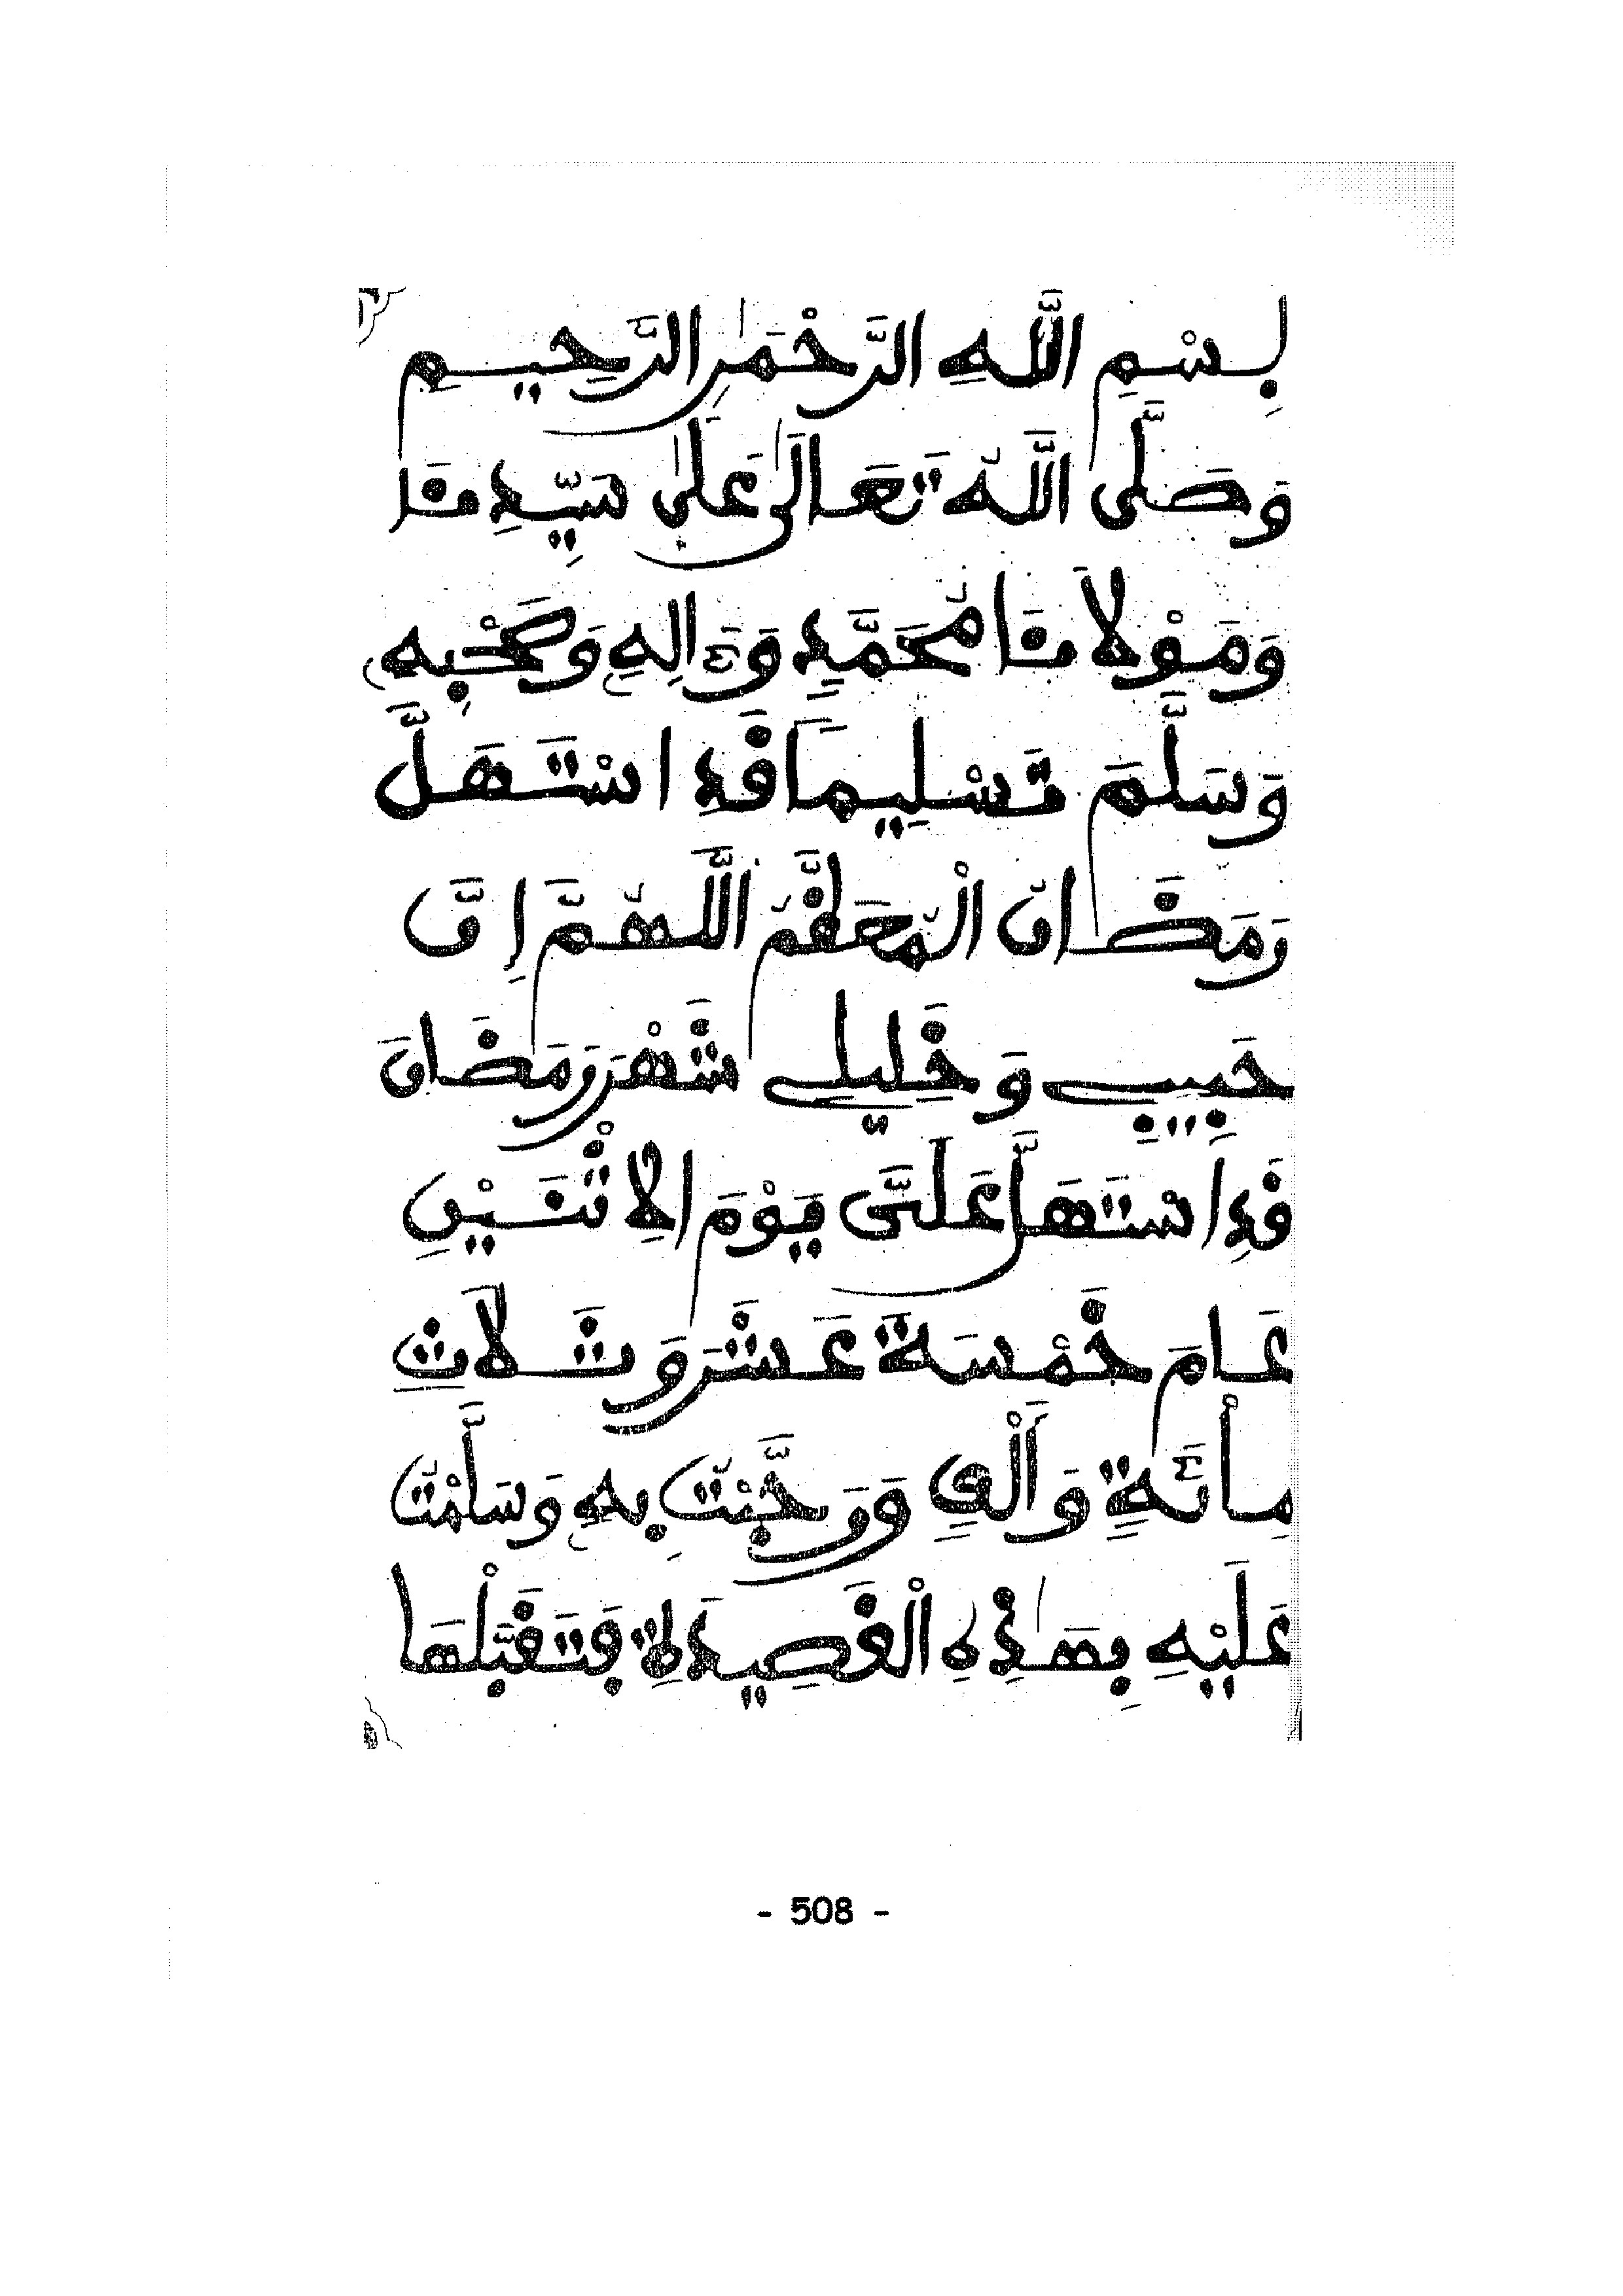 بِسْمِ اللَّهِ الرَّحْمَٰنِ الرَّحِيمِ
وَصَلَّى اللَّهُ تَعَالَىٰ عَلَىٰ سَيِّدِنَا
وَمَوْلَانَا مُحَمَّدٍ وَءَالِهِ وَصَحْبِهِ
وَسَلَّمَ تَسْلِيمًا قَدِ اسْتَهَلَّ
رَمَضَانُ الْمُعَظَّمُ اللَّهُمَّ إِنَّ
حَبِيبِي وَخَلِيلِي شَهْرَ رَمَضَانَ
قَدِ اسْتَهَلَّ عَلَيَّ يَوْمَ الِاثْنَيْنِ
عَامَ خَمْسَةَ عَشَرَ وَثَلَاثِ
مِائَةٍ وَأَلْفٍ وَرَحَّبْتُ بِهِ وَسَلَّمْتُ
عَلَيْهِ بِهَٰذِهِ الْقَصِيدَةِ فَتَقَبَّلْهَا
- 508 -